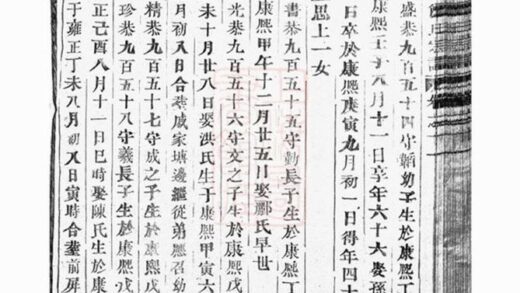 盛恭九百五十四守韜幼子生於康熙丁
康熙壬子八月十二日享年六十六娶孫
日卒於康熙庚寅九月初一日得年四十
思上一女
書恭九百五十五守勤長子生於康熙
康熙甲午十二月廿五日娶酈氏早世
光恭九百五十六守文之子生於康熙戊
未十月廿八日娶洪氏生于康熙甲寅六
月初八日合塟戚家塘邊繼從弟熙召幼
精恭九百五十七守成之子生於康熙戊
珍恭九百五十八守義長子生於康熙戊
正己酉八月十一日巳時娶陳氏生於康
于雍正丁未八月初八日寅時合塟前屏